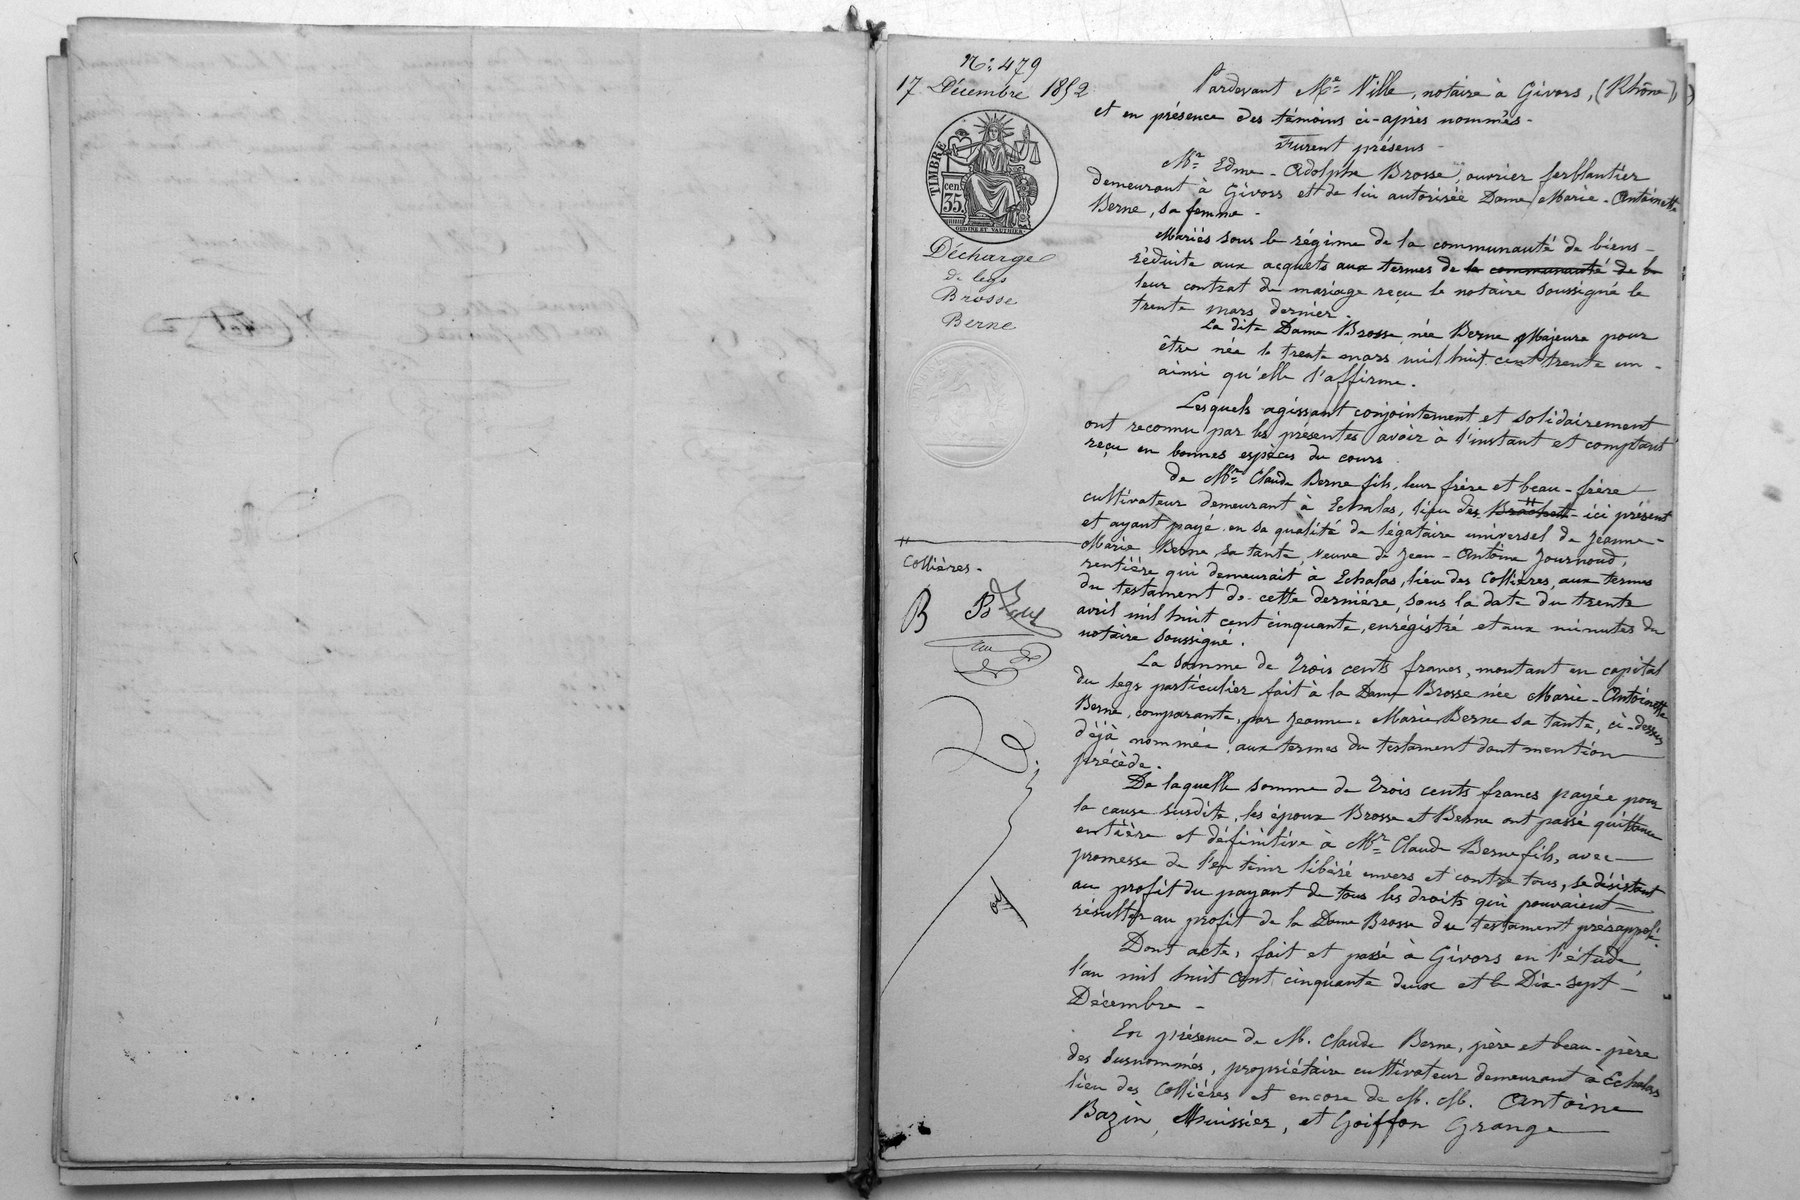 N° 479
17 Décembre 1852
TIMBRE
35 cen.
Décharge
de legs
Brosse
Berne
Collières.
B
Pardevant Me Ville, notaire à Givors, (Rhône)
et en présence des témoins ci-après nommés.
Furent présens
Mr Edme-Adolphe Brosse, ouvrier ferblantier
demeurant à Givors et de lui autorisée Dame Marie-Antoinette
Berne, sa femme.
Mariés sous le régime de la communauté de biens
réduite aux acquets aux termes de la communauté de b
leur contrat de mariage reçu le notaire soussigné le
trente mars dernier.
La dite Dame Brosse née Berne Majeure pour
être née le trente mars mil huit cent trente un
ainsi qu'elle l'affirme.
Lesquels agissant conjointement et solidairement
ont reconnu par les présentes avoir à l'instant et comptant
reçu en bonnes espèces du cours
de Mr Claude Berne fils, leur frère et beau-frère
cultivateur demeurant à Echalas, lieu des ici présent
et ayant payé en sa qualité de légataire universel de Jeanne-
Marie Berne, sa tante, veuve de Jean-Antoine Journoud,
rentière qui demeurait à Echalas, lieu des Collières, aux termes
du testament de cette dernière, sous la date du trente
avril mil huit cent cinquante, enrégistré et aux minutes du
notaire soussigné.
La somme de Trois cents francs, montant en capital
du legs particulier fait à la Dame Brosse née Marie-Antoinette
Berne, comparante, par Jeanne-Marie Berne sa tante, ci-dessus
déjà nommée, aux termes du testament dont mention
précède.
De laquelle somme de Trois cents francs payée pour
la cause susdite, les époux Brosse et Berne ont passé quittance
entière et définitive à Mr Claude Berne fils, avec
promesse de l'en tenir libéré envers et contre tous, se désistant
au profit du payant de tous les droits qui pouvaient
résulter au profit de la Dame Brosse du testament présrappelé.
Dont acte, fait et passé à Givors en l'étude,
l'an mil huit cent cinquante deux et le Dix-sept
Décembre
En présence de M. Claude Berne, père et beau-père
des susnommés, propriétaire cultivateur demeurant à Echalas
lieu des Collières et encore de M. M. Antoine
Bazin, Huissier, et Goiffon Grange